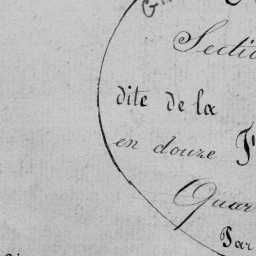 Sectio
dite de la
en douze F
Quar
Par